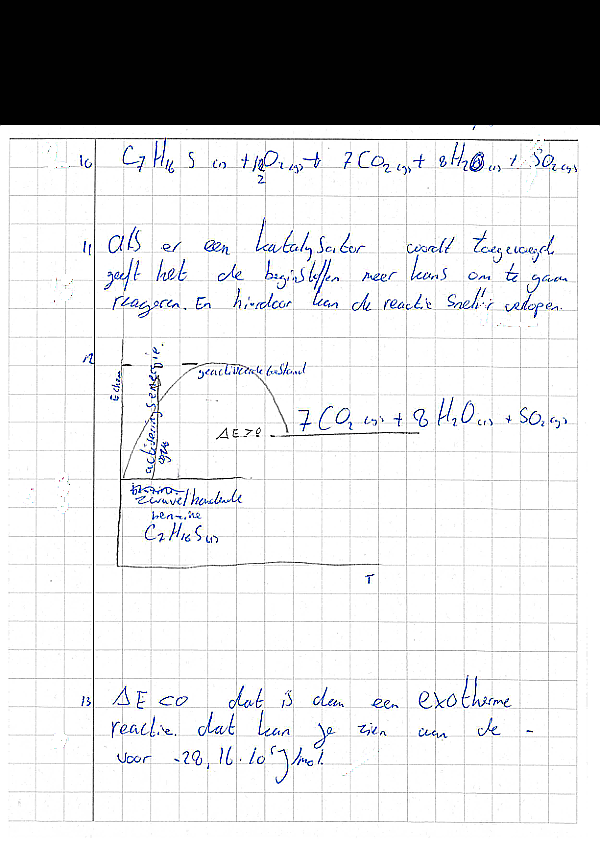 10 C7 H16 S (l) + 12 O2 (g) → 7 CO2 (g) + 8 H2O (l) + SO2 (g)
2
11 Als er een katalysator wordt toegevoegd
geeft het de beginstoffen meer kans om te gaan
reageren. En hierdoor kan de reactie sneller verlopen.
12
E chem
activeringsenergie.
geactiveerde toestand
ΔE>0
7 CO2 (g) + 8 H2O (l) + SO2 (g)
zwavelhoudende
benzine
C7 H16 S (l)
T
13 ΔE <0 dat is dan een exotherme
reactie. dat kan je zien aan de -
voor -28,16·10⁵ J/mol.